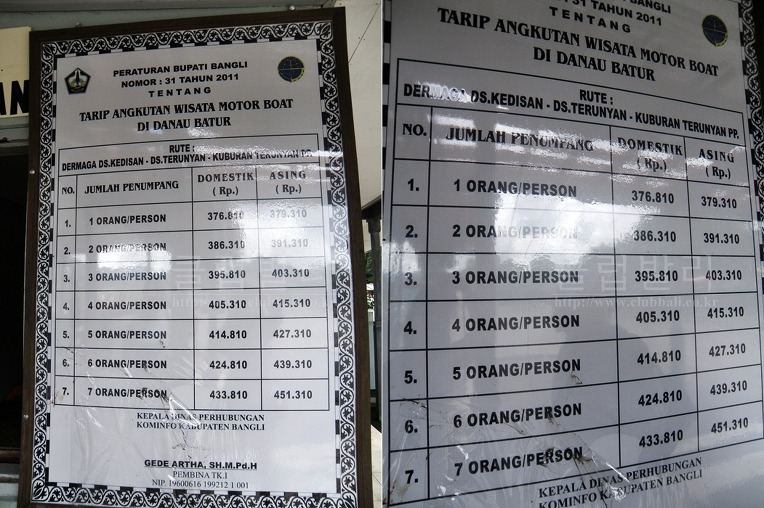 AN
PERATURAN BUPATI BANGLI
NOMOR : 31 TAHUN 2011
T E N T A N G
TARIP ANGKUTAN WISATA MOTOR BOAT
DI DANAU BATUR
RUTE :
DERMAGA DS.KEDISAN - DS.TERUNYAN - KUBURAN TERUNYAN PP.
NO. JUMLAH PENUMPANG DOMESTIK (Rp.) ASING (Rp.)
1. 1 ORANG/PERSON 376.810 379.310
2. 2 ORANG/PERSON 386.310 391.310
3. 3 ORANG/PERSON 395.810 403.310
4. 4 ORANG/PERSON 405.310 415.310
5. 5 ORANG/PERSON 414.810 427.310
6. 6 ORANG/PERSON 424.810 439.310
7. 7 ORANG/PERSON 433.810 451.310
KEPALA DINAS PERHUBUNGAN
KOMINFO KABUPATEN BANGLI
GEDE ARTHA, SH.M.Pd.H
PEMBINA TK.I
NIP. 19600616 199212 1 001
BANGLI
31 TAHUN 2011
T E N T A N G
TARIP ANGKUTAN WISATA MOTOR BOAT
DI DANAU BATUR
RUTE :
DERMAGA DS.KEDISAN - DS.TERUNYAN - KUBURAN TERUNYAN PP.
NO. JUMLAH PENUMPANG DOMESTIK (Rp.) ASING (Rp.)
1. 1 ORANG/PERSON 376.810 379.310
2. 2 ORANG/PERSON 386.310 391.310
3. 3 ORANG/PERSON 395.810 403.310
4. 4 ORANG/PERSON 405.310 415.310
5. 5 ORANG/PERSON 414.810 427.310
6. 6 ORANG/PERSON 424.810 439.310
7. 7 ORANG/PERSON 433.810 451.310
KEPALA DINAS PERHUBUNGAN
KOMINFO KABUPATEN BANGLI
클럽발리
http://www.clubbali.co.kr